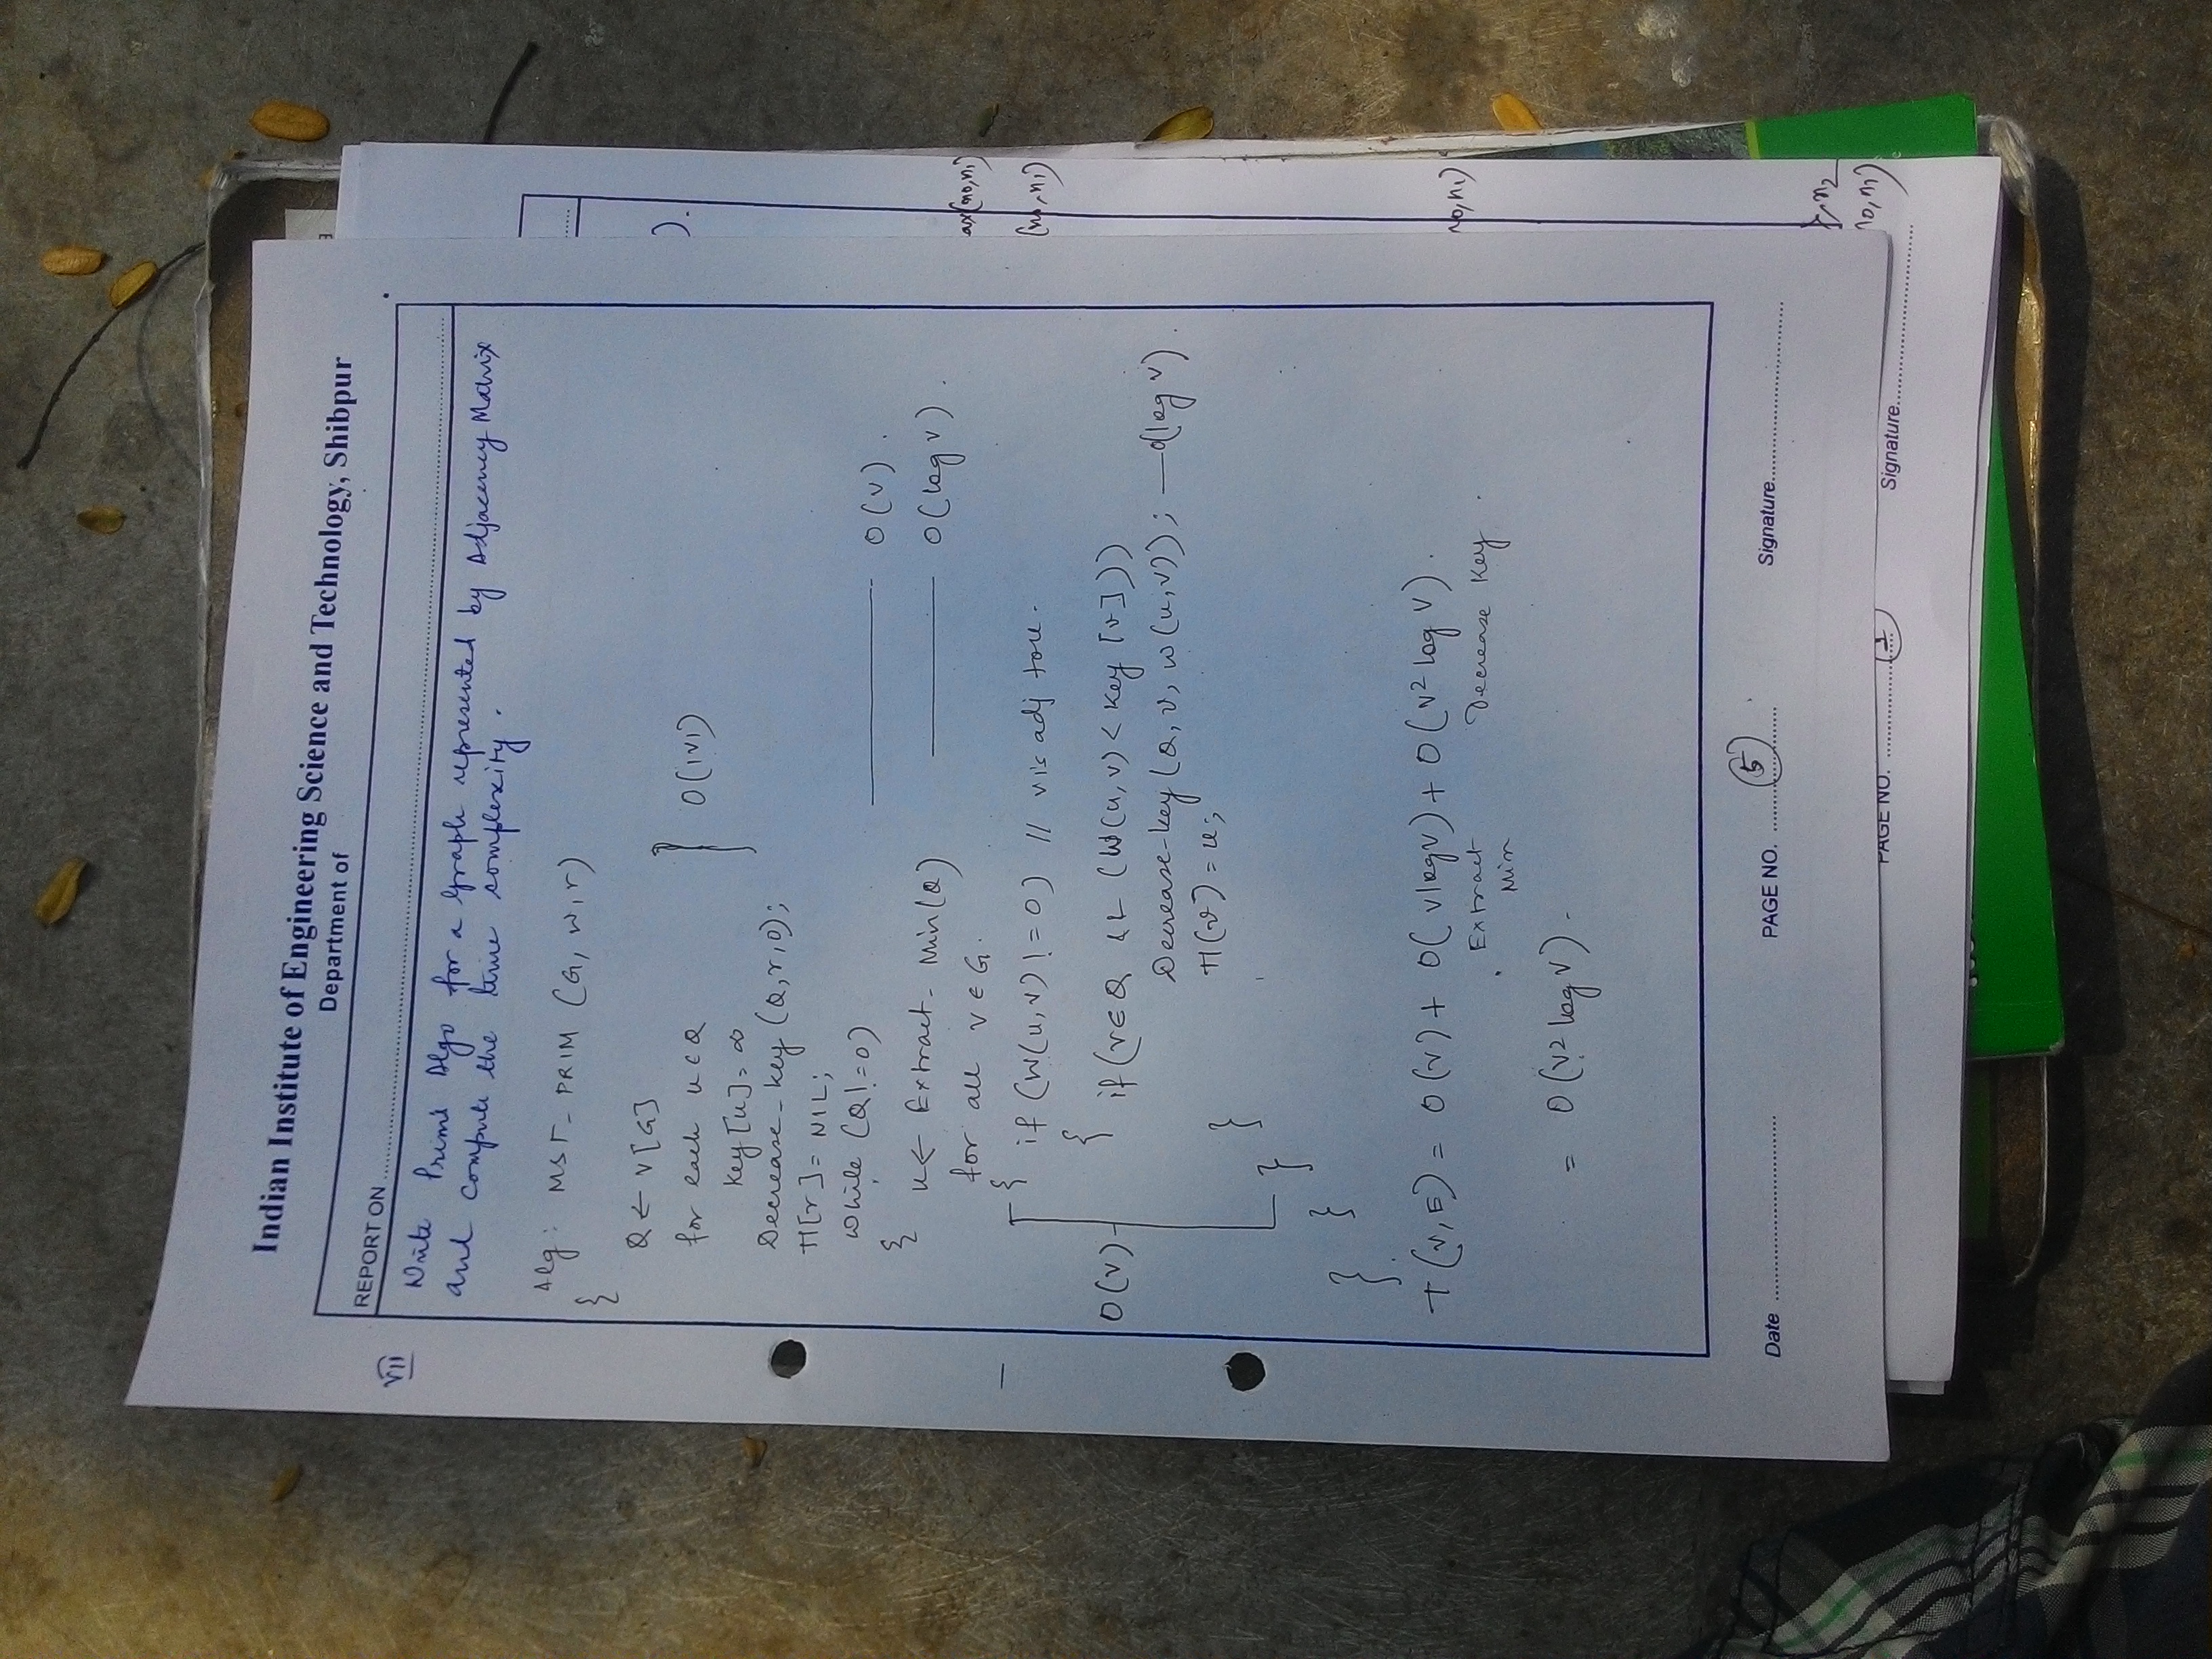 Indian Institute of Engineering Science and Technology, Shibpur
Department of
REPORT ON
VII
Write Prims Algo for a Graph represented by Adjacency Matrix
and compute the time complexity.
Alg: MST-PRIM (G, w, r)
{
Q ← V[G]
for each u ∈ Q
key[u] = ∞
} O(|V|)
Decrease-key (Q, r, 0);
π[r] = NIL;
while (Q! = 0) — O(V).
{ u ← Extract-Min(Q) — O(log V).
for all v ∈ G.
{ if (W(u,v)! = 0) // v is adj to u.
O(V)
{ if (v ∈ Q && (W(u,v) < key [v]))
Decrease-key (Q, v, w(u,v)); — O(log V).
π(v) = u;
}
}
}
}
T(V,E) = O(V) + O(V log V) + O(V² log V).
Extract Decrease key.
Min
= O(V² log V).
Date
PAGE NO. 5
Signature
PAGE NO. 1
Signature
).
ax(n0,n1)
(n0,n1)
n0,n1)
n2
n0,n1)